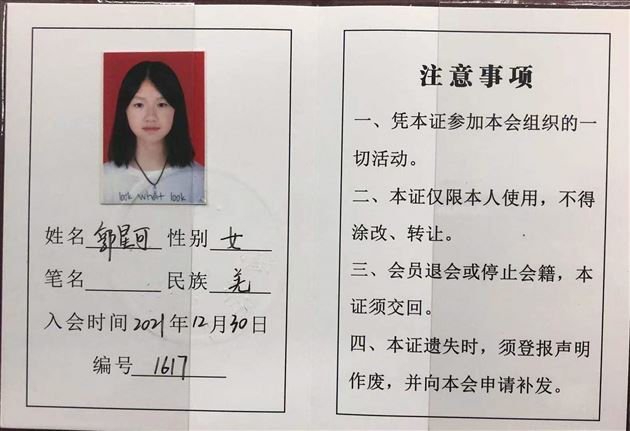 look what look
姓名 郭星可 性别 女
笔名 民族 羌
入会时间 2021年12月30日
编号 1617
注意事项
一、凭本证参加本会组织的一
切活动。
二、本证仅限本人使用，不得
涂改、转让。
三、会员退会或停止会籍，本
证须交回。
四、本证遗失时，须登报声明
作废，并向本会申请补发。